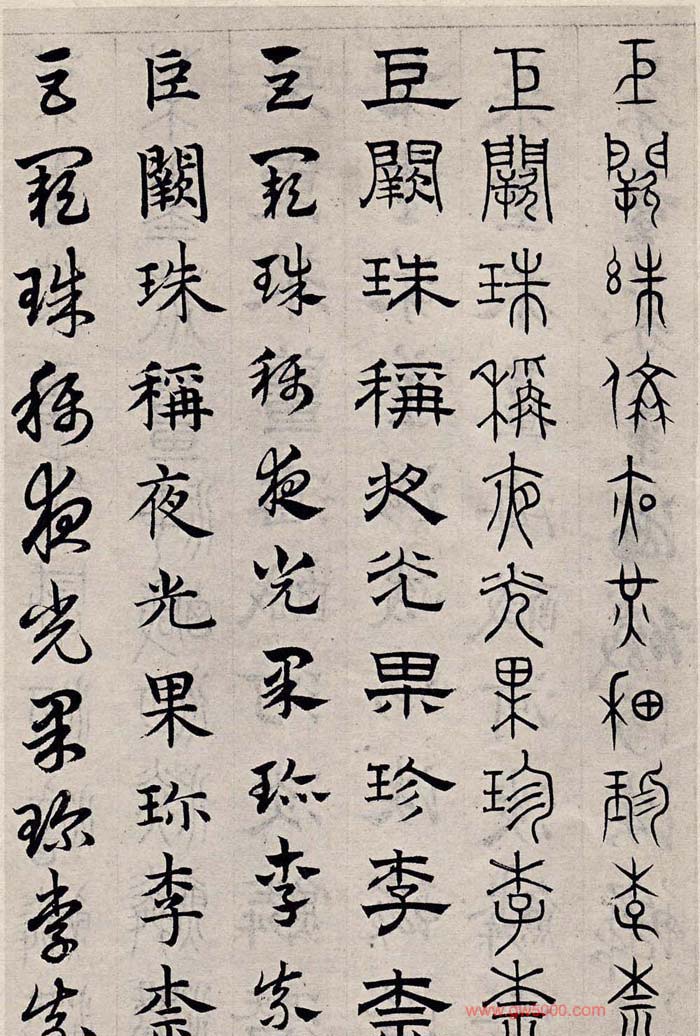 巨闕珠稱夜光果珍李柰
巨闕珠稱夜光果珍李柰
巨闕珠稱夜光果珍李柰
巨闕珠稱夜光果珍李柰
巨闕珠稱夜光果珍李柰
巨闕珠稱夜光果珍李柰
www.gw5000.com